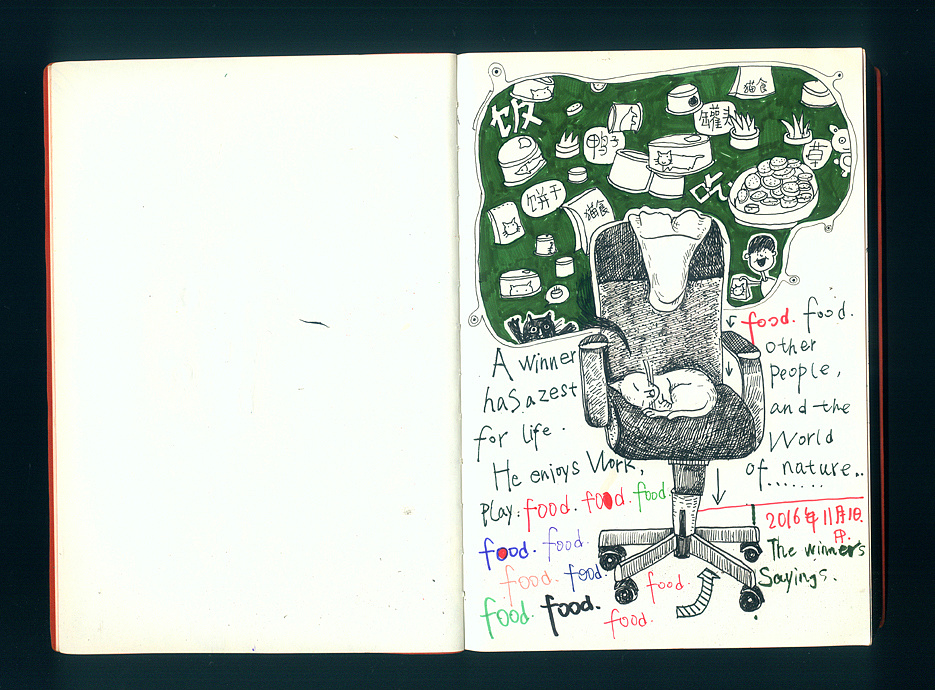 饭
猫食
罐头
鸭子
草
吃
饼干
猫食
A winner
has a zest
for life.
He enjoys Work,
Play. food. food. food.
food. food.
food. food.
food. food.
food. food.
food. food.
other
People,
and the
World
of nature..
2016年11月1日.
The winner's
Sayings.